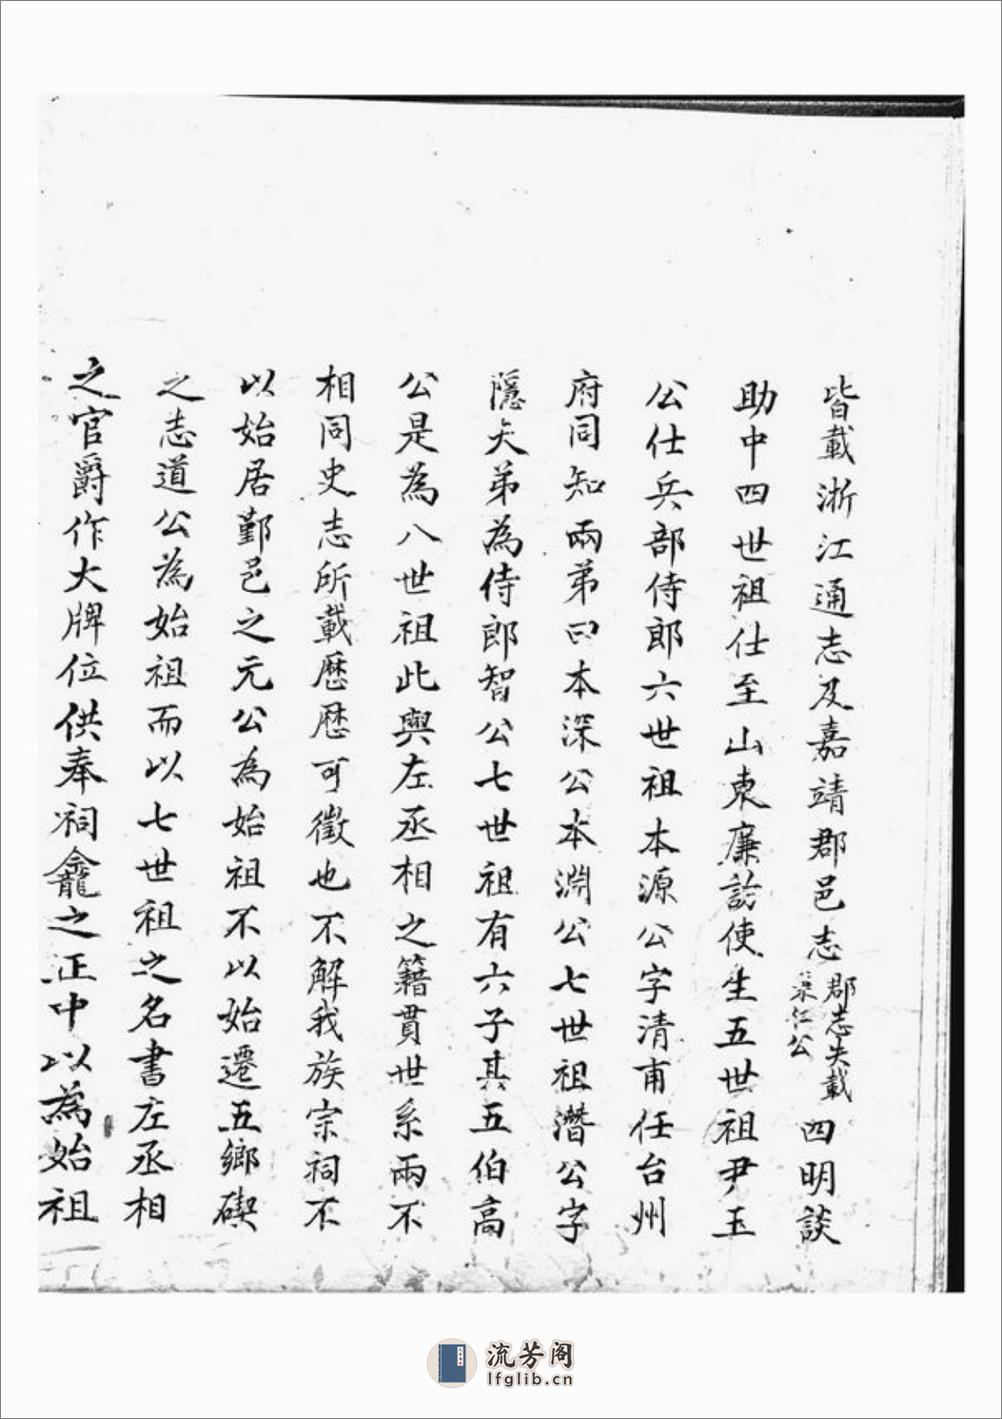 皆載浙江通志及嘉靖郡邑志郡志失載四明談
助中四世祖仕至山東廉訪使生五世祖尹玉
公仕兵部侍郎六世祖本源公字清甫任台州
府同知兩弟曰本深公本淵公七世祖潛公字
隱夫弟為侍郎智公七世祖有六子其五伯高
公是為八世祖此與左丞相之籍貫世系兩不
相同史志所載歷歷可徵也不解我族宗祠不
以始居鄞邑之元公為始祖不以始遷五鄉碶
之志道公為始祖而以七世祖之名書左丞相
之官爵作大牌位供奉祠龕之正中以為始祖
流芳阁
lfglib.cn